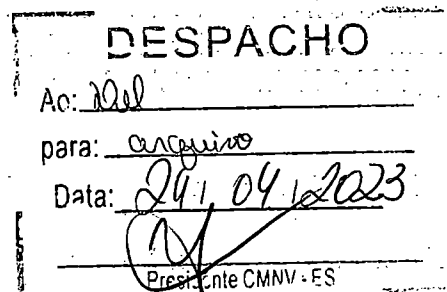 DESPACHO
Ao:
para: arquivo
Data: 24, 04, 2023
Presidente CMNV - ES